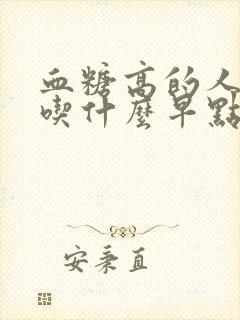 血糖高的人
喫什麼早點
安秉直